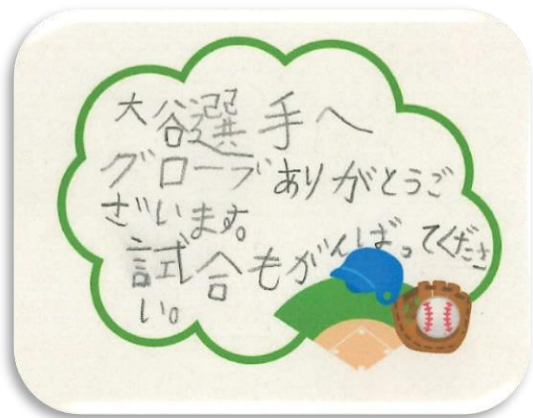 大谷選手へ
グローブありがとうご
ざいます。
試合もがんばってくださ
い。